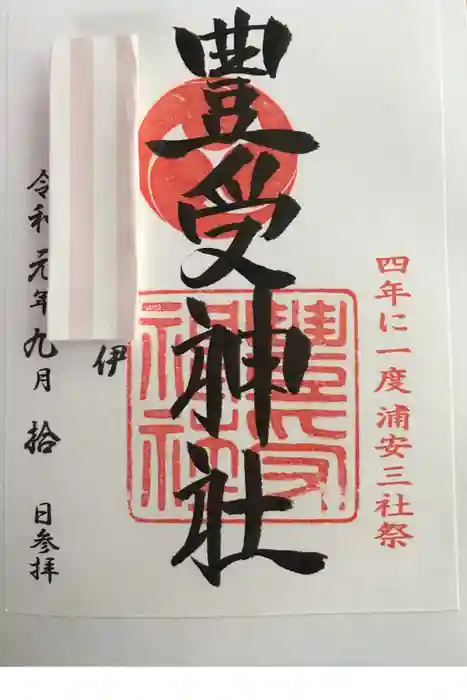 四年に一度浦安三社祭
豊受神社
豊受神社
伊
令和元年九月拾日参拝